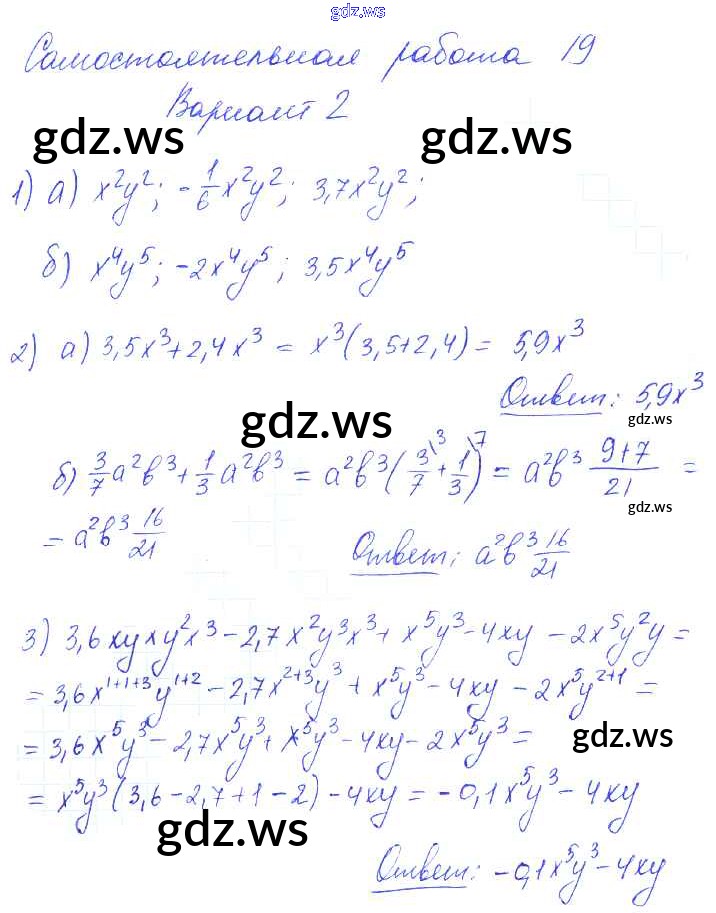 gdz.ws
Самостоятельная работа 19
Вариант 2
gdz.ws gdz.ws
1) а) x²y²; -1/6 x²y²; 3,7x²y²;
б) x⁴y⁵; -2x⁴y⁵; 3,5x⁴y⁵
2) а) 3,5x³+2,4x³ = x³(3,5+2,4) = 5,9x³
Ответ: 5,9x³
gdz.ws gdz.ws
б) 3/7 a²b³ + 1/3 a²b³ = a²b³(3/7\³ + 1/3\⁷) = a²b³ (9+7)/21 =
= a²b³ 16/21
gdz.ws
Ответ: a²b³ 16/21
3) 3,6xyxy²x³ - 2,7x²y³x³ + x⁵y³ - 4xy - 2x⁵y²y =
= 3,6x¹⁺¹⁺³y¹⁺² - 2,7x²⁺³y³ + x⁵y³ - 4xy - 2x⁵y²⁺¹ =
= 3,6x⁵y³ - 2,7x⁵y³ + x⁵y³ - 4xy - 2x⁵y³ =
gdz.ws
= x⁵y³(3,6-2,7+1-2) - 4xy = -0,1x⁵y³ - 4xy
gdz.ws
Ответ: -0,1x⁵y³ - 4xy